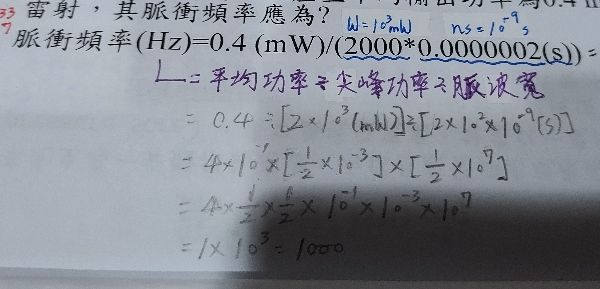 雷射，其脈衝頻率應為？
33
7
W=10³mW ns=10⁻⁹s
脈衝頻率(Hz)=0.4 (mW)/(2000*0.0000002(s))=
L=平均功率÷尖峰功率÷脈波寬
= 0.4÷[2×10³(mW)]÷[2×10²×10⁻⁹(s)]
= 4×10⁻¹×[1/2×10⁻³]×[1/2×10⁷]
= 4×1/2×1/2×10⁻¹×10⁻³×10⁷
= 1×10³=1000